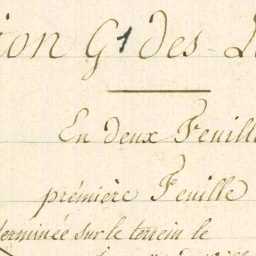 ion G1 des
En deux Feuill
prémière Feuille
terminée sur le terrein le